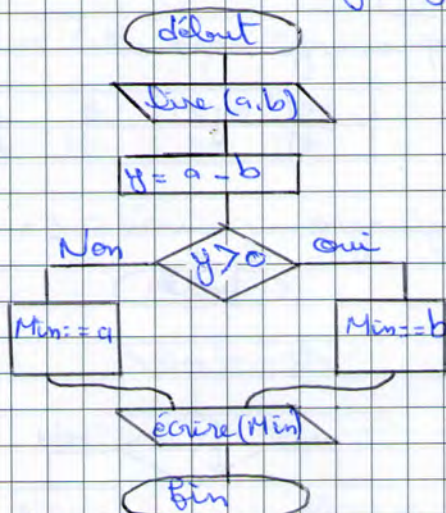 début
lire (a,b)
y = a - b
Non
y > 0
oui
Min:=a
Min:=b
écrire (Min)
fin